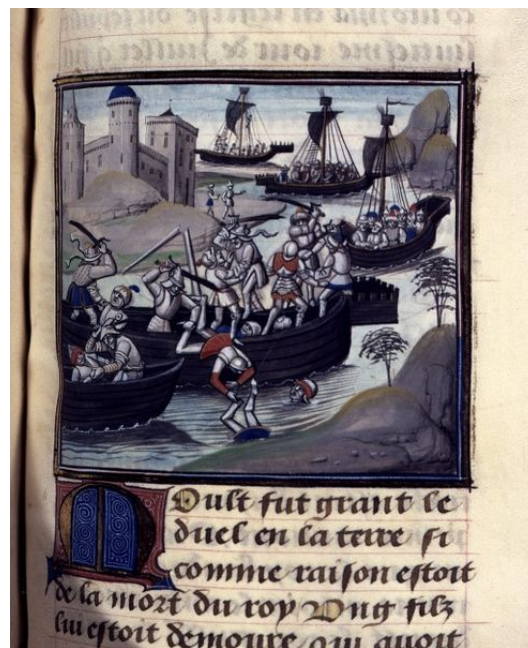 Moult fut grant le
duel en la terre si
comme raison estoit
de la mort du roy Ung filz
lui estoit demoure qui avoit